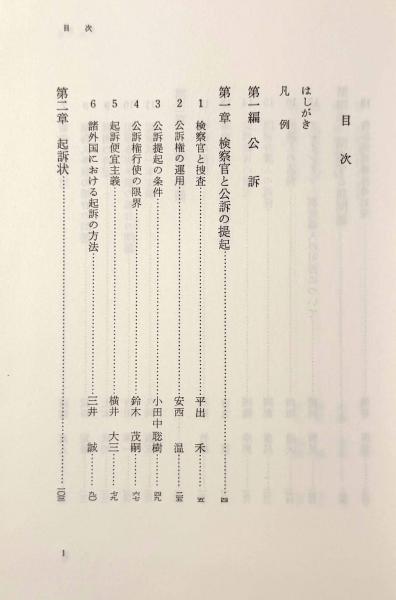 目次
目次
はしがき
凡例
第一編 公訴
第一章 検察官と公訴の提起……四
1 検察官と捜査……平出 禾…五
2 公訴権の運用……安西 温…二五
3 公訴提起の条件……小田中聡樹…四九
4 公訴権行使の限界……鈴木 茂嗣…六七
5 起訴便宜主義……横井 大三…七九
6 諸外国における起訴の方法……三井 誠…九〇
第二章 起訴状……一〇三
1